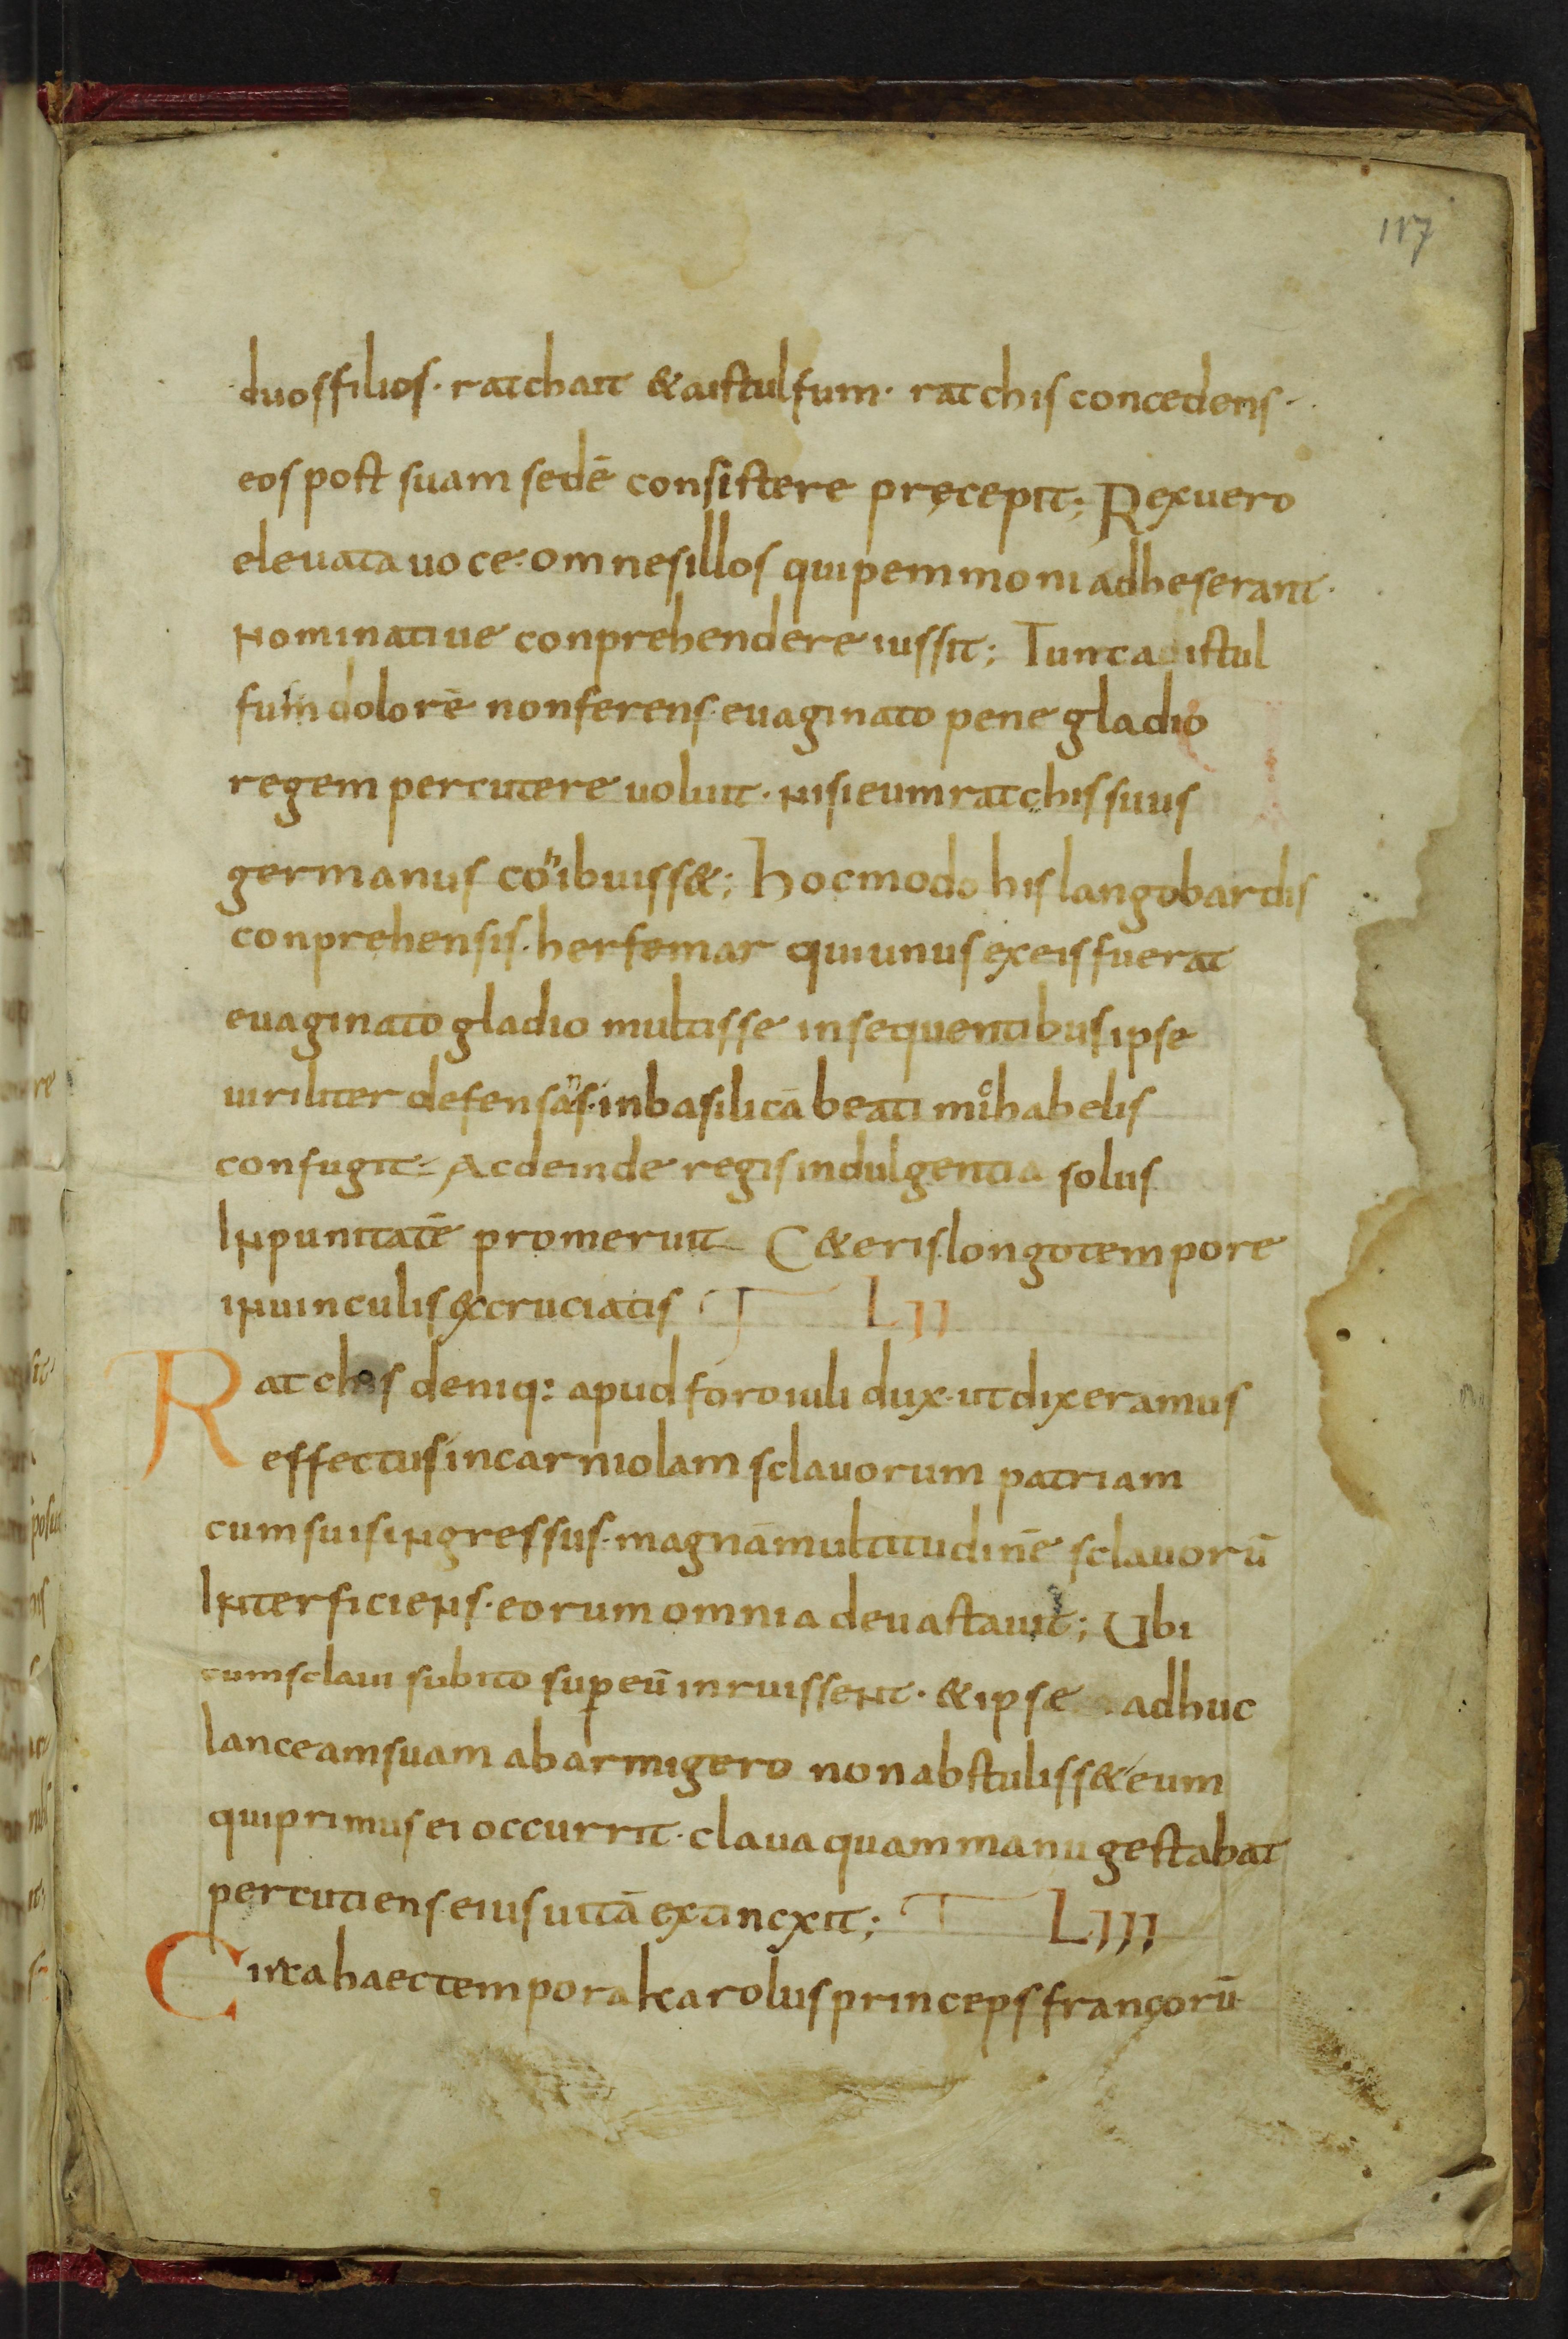 117
duos filios · ratchait & aistulfum · ratchis concedens ·
eos post suam sedē consistere pręcepit; Rex uero
eleuata uoce · omnes illos qui pemmoni adheserant ·
nominatiue conprehendere iussit; Tunc adistul
fum dolorē non ferens · euaginato pene gladio
regem percutere uoluit · nisi eum ratchis suus
germanus cohibuiss&; hoc modo his langobardis
conprehensis · herfemar qui unus ex eis fuerat
euaginato gladio multis se insequentibus ipse
uiriliter defensans · in basilicā beati michahelis
confugit · Ac deinde regis indulgentia solus
Inpunitatē promeruit C&eris longo tempore
in uinculis excruciatis LII
Ratchis deniq: apud foroiuli dux · ut dixeramus
effectus in carniolam sclauorum patriam
cum suis ingressus · magnā multitudinē sclauorū
Interficiens · eorum omnia deuastauit; Ubi
cum sclaui subito super eū inruissent · & ipse adhuc
lanceam suam ab armigero non abstuliss& eum
qui primus ei occurrit · claua quam manu gestabat
percutiens eius uitā extincxit; LIII
Circa haec tempora karolus princeps francorū